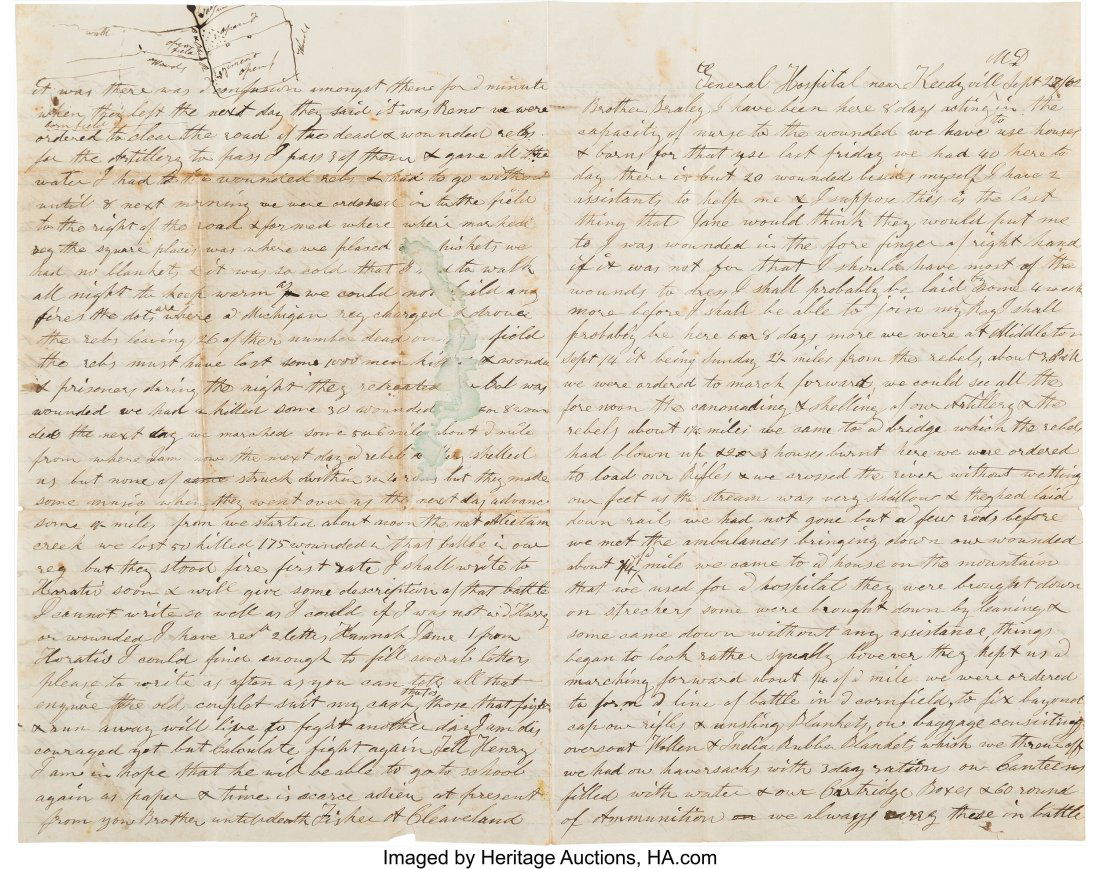 MD
General Hospital near Keedyvill Sept 27/62
Brother Braley I have been here 8 days acting in the
capacity of nurse to the wounded we have to use houses
& barns for that use last friday we had 40 here to
day there is but 20 wounded besides myself I have 2
assistants to help me & I suppose this is the last
thing that Jane would think they would put me
to I was wounded in the fore finger of right hand
if it was not for that I should have most of the
wounds to dress I shall probably be laid some 4 week
more before I shall be able to join my Reg I shall
probably be here 6 or 8 days more we were at Middletown
Sept 14 it being Sunday 2½ miles from the rebels about
we were ordered to march forward, we could see all the
fore noon the canonading & shelling of our Artillery & the
rebels about 1½ miles we came to a bridge which the rebels
had blown up & 2 or 3 houses burnt here we were ordered
to load our Rifles & we crossed the river without wetting
our feet as the stream was very shallow & they had laid
down rails we had not gone but a few rods before
we met the ambulances bringing down our wounded
about mile we came to a house on the mountain
that we used for a hospital they were brought down
on strechers some were brought down by leaning &
some came down without any assistance things
began to look rather squally however they kept us a
marching forward about ¼ of a mile we were ordered
to form a line of battle in a cornfield, to fix bayonet
cap our rifles & unsling Blankets, our baggage consisting of
overcoat Wollen & India Rubber Blanket, which we threw off
we had on haversacks with 3 day rations our Canteens
filled with water & our Cartridge Boxes & 60 round
of Ammunition we always carry these in battle
wall
open field
woods
open
woods
open
it was there was a confusion amongst them for a minute
when they left the next day they said it was Reno we were
ordered to clear the road of the dead & wounded rebs
for the Artillery to pass I pass 3 of them & gave all the
water I had to the wounded rebs & had to go without
until 8 next morning we were ordered in to the field
to the right of the road & formed where where marked
reg the square places was where we placed we
had no blankets & it was so cold that I to walk
all night to keep warm as we could not build any
fires the dots are where a Michigan reg charged & drove
the rebs leaving 26 of ther number dead on field
the rebs must have lost some 1000 men & wounde
d & prisoners during the night they retreated but was
wounded we had a killed some 30 wounded
ded the next day we marched some 5 or 6 mile about 1 mile
from where I am now the next day a rebel shelled
us but none of struck within 3 or 4 rods but they made
some music when they went over us the next day advance
some ½ miles from we started about noon the next Alietam
creek we lost 50 killed 175 wounded in that battle in our
reg but they stood fire first rate I shall write to
Horatio soon & will give some description of that battle
I cannot write so well as I could if I was not in a Hurry
or wounded I have recd 2 letters Hannah Jane 1 from
Horatio I could find enough to fill several letters
please to write as often as you can tell all that
enquire the old couplet suit my case that is those that fight
& run away will live to fight another day I am dis
couraged yet but calculate fight again Tell Henry
I am in hope that he will be able to go to school
again as paper & time is scarce adieu at present
from you Brother until death Fisher A Cleaveland
Imaged by Heritage Auctions, HA.com